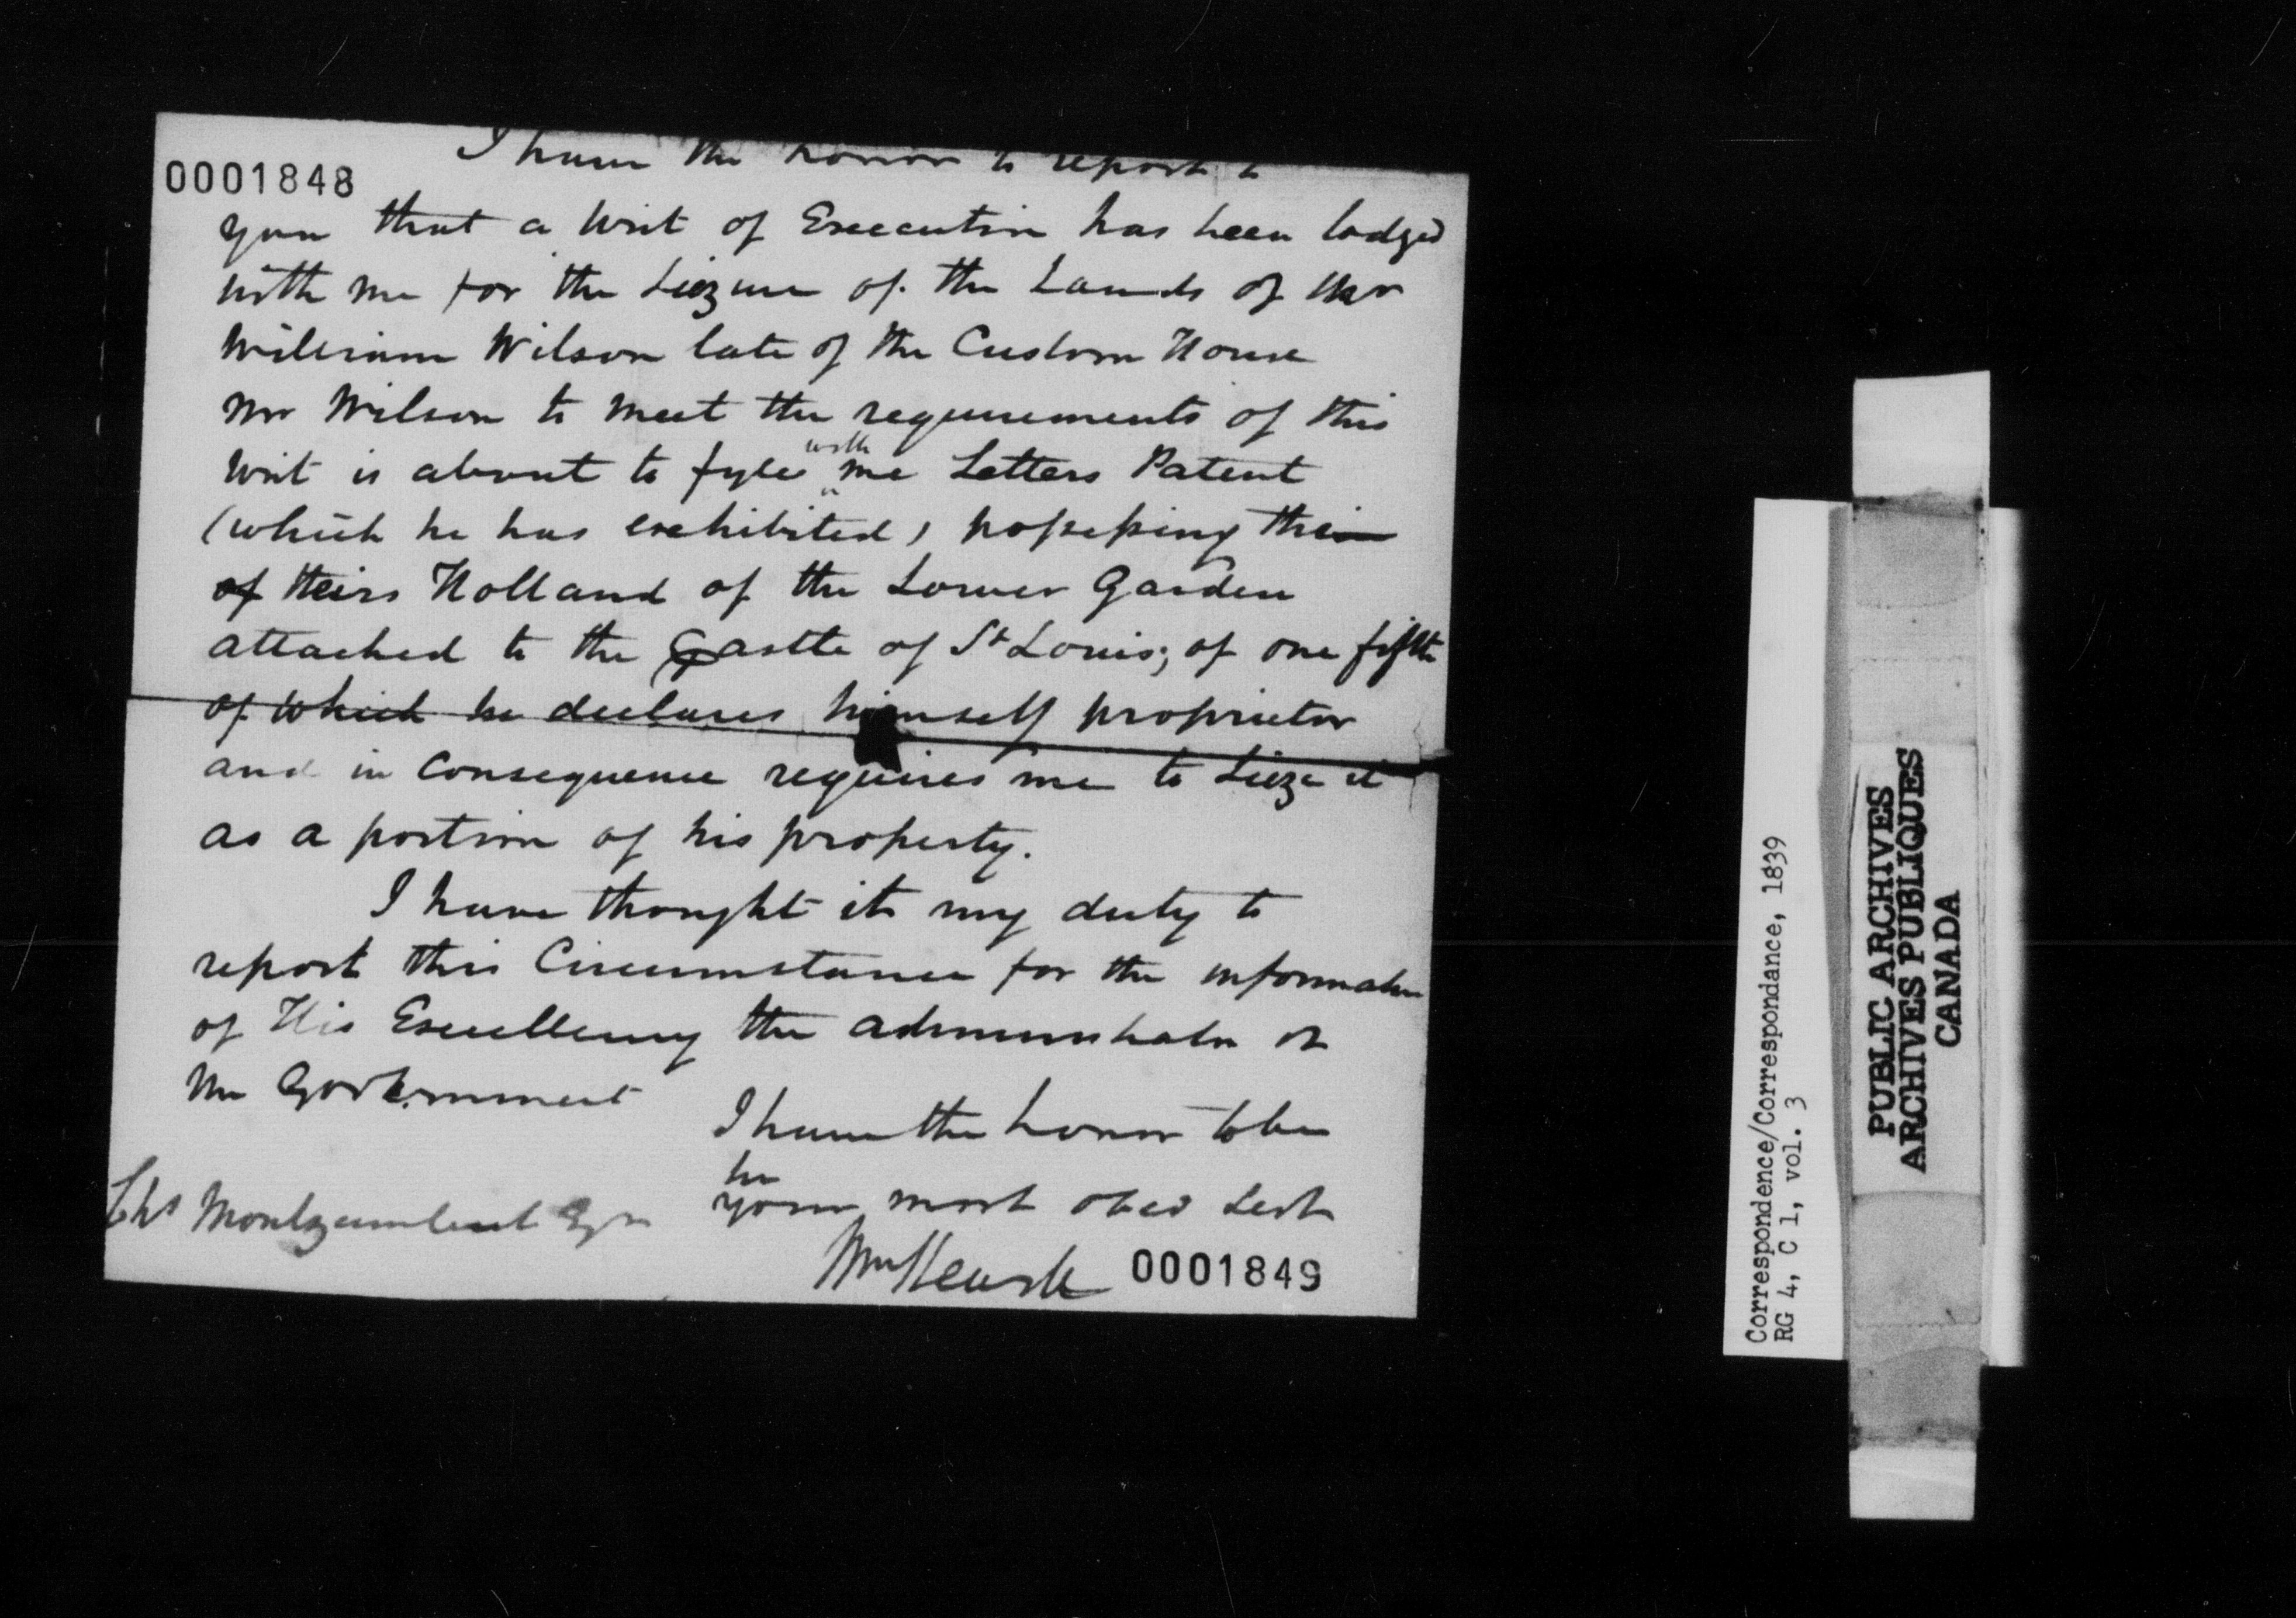 I have the honor to report to
0001848
you that a Writ of Execution has been lodged
with me for the Siezure of the Lands of Mr
William Wilson late of the Custom House
Mr Wilson to meet the requirements of this
writ is about to fyle with me Letters Patent
(which he has exhibited) possessing the
of Heirs Holland of the Lower Garden
attached to the Castle of St Louis; of one fifth
of which he declares himself proprietor
and in consequence requires me to Sieze it
as a portion of his property.
I have thought it my duty to
report this Circumstance for the information
of His Excellency the administrator of
the Government
I have the honor to be
Sir
Your most obed Servt
Chs Montizambert Esqr
0001849
Correspondence/Correspondance, 1839
RG 4, C 1, vol. 3
PUBLIC ARCHIVES
ARCHIVES PUBLIQUES
CANADA